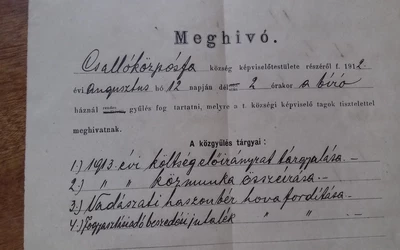 Meghivó.
Csallóközpósfa község képviselőtestülete részéről f. 1912.
évi augusztus hó 12 napján dél - 2 órakor a bíró
háznál rendes gyűlés fog tartatni, melyre a t. községi képviselő tagok tisztelettel
meghivatnak.
A közgyülés tárgyai :
1.) 1913 évi költségelőirányzat tárgyalása.
2.) " " közmunka összeírása.
3.) Vadászati haszonbér hovafordítása.
4.) Fogyasztásiadó beszedési jutalék " "